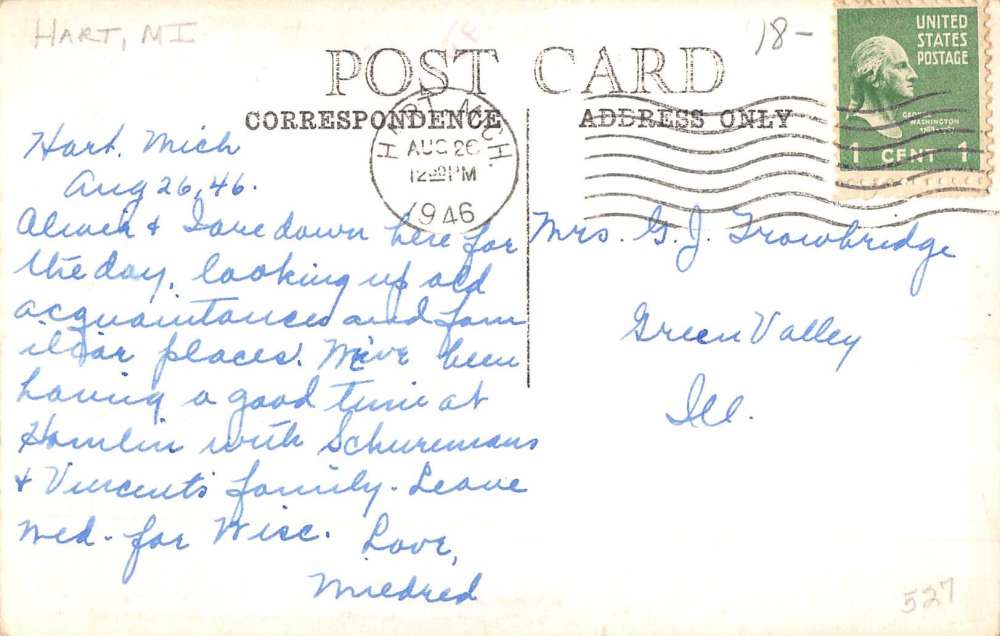 HART, MI
18-
UNITED
STATES
POSTAGE
POST CARD
CORRESPONDENCE
ADDRESS ONLY
GEORGE
WASHINGTON
1 CENT 1
HART, MICH.
AUG 26
12 PM
1946
Hart. Mich
Aug 26, 46.
& I are down here for
the day, looking up old
acquaintances and fam
iliar places. We've been
having a good time at
Hamlin with Schuremans
& Vincents family - Leave
Wed. for Wisc.
Love,
Mildred
Mrs. G. J. Trowbridge
Green Valley
Ill.
527